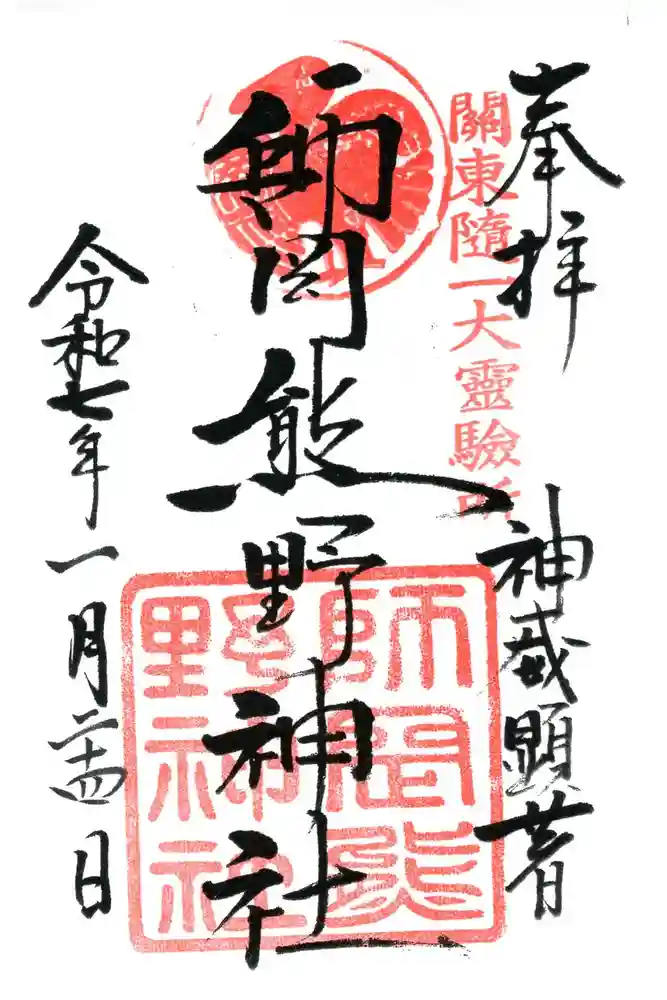 奉拝
關東隨一大靈驗所
神威顕著
師岡熊野神社
師岡熊
野神社
令和七年一月二十四日